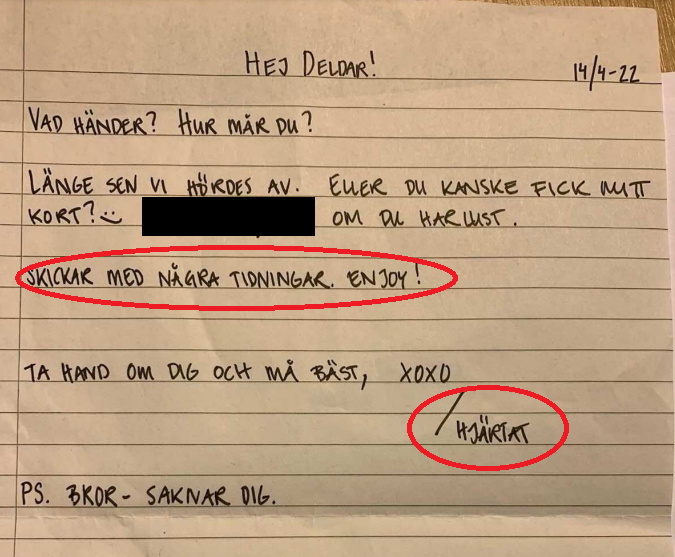 HEJ DELDAR!
14/4-22
VAD HÄNDER? HUR MÅR DU?
LÄNGE SEN VI HÖRDES AV. ELLER DU KANSKE FICK MITT
KORT? OM DU HAR LUST.
SKICKAR MED NÅGRA TIDNINGAR. ENJOY!
TA HAND OM DIG OCH MÅ BÄST, XOXO
/HJÄRTAT
PS. BROR- SAKNAR DIG.